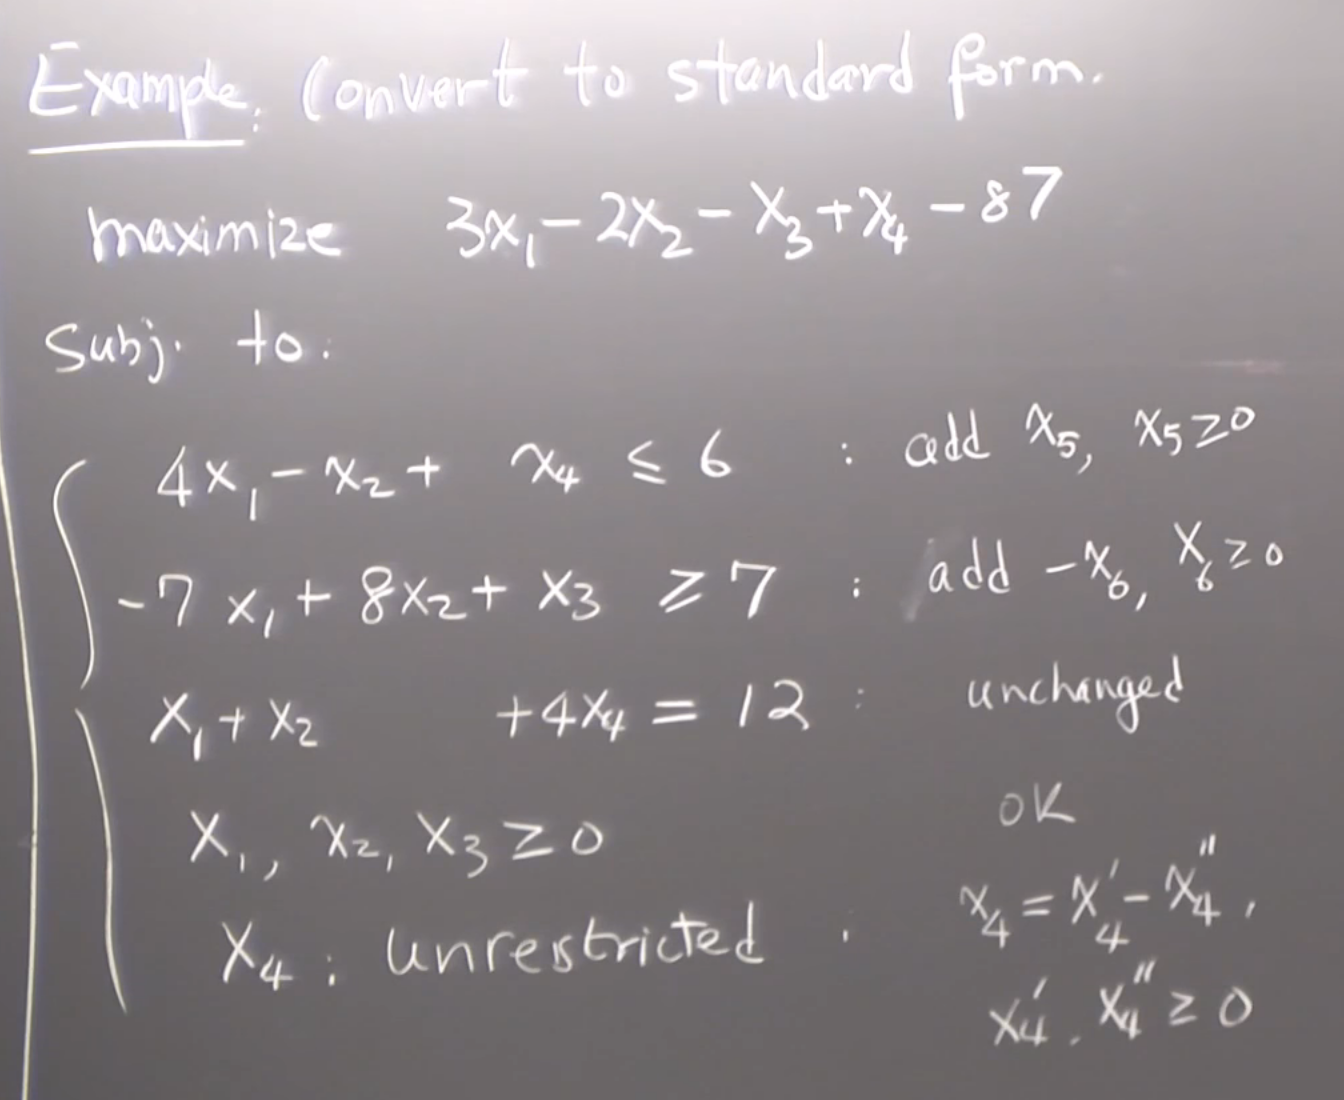 Example: Convert to standard form.
maximize 3x₁ - 2x₂ - x₃ + x₄ - 87
Subj. to:
4x₁ - x₂ + x₄ ≤ 6 : add x₅, x₅ ≥ 0
-7x₁ + 8x₂ + x₃ ≥ 7 : add -x₆, x₆ ≥ 0
x₁ + x₂ + 4x₄ = 12 : unchanged
x₁, x₂, x₃ ≥ 0 OK
x₄ : unrestricted : x₄ = x₄' - x₄'',
x₄', x₄'' ≥ 0